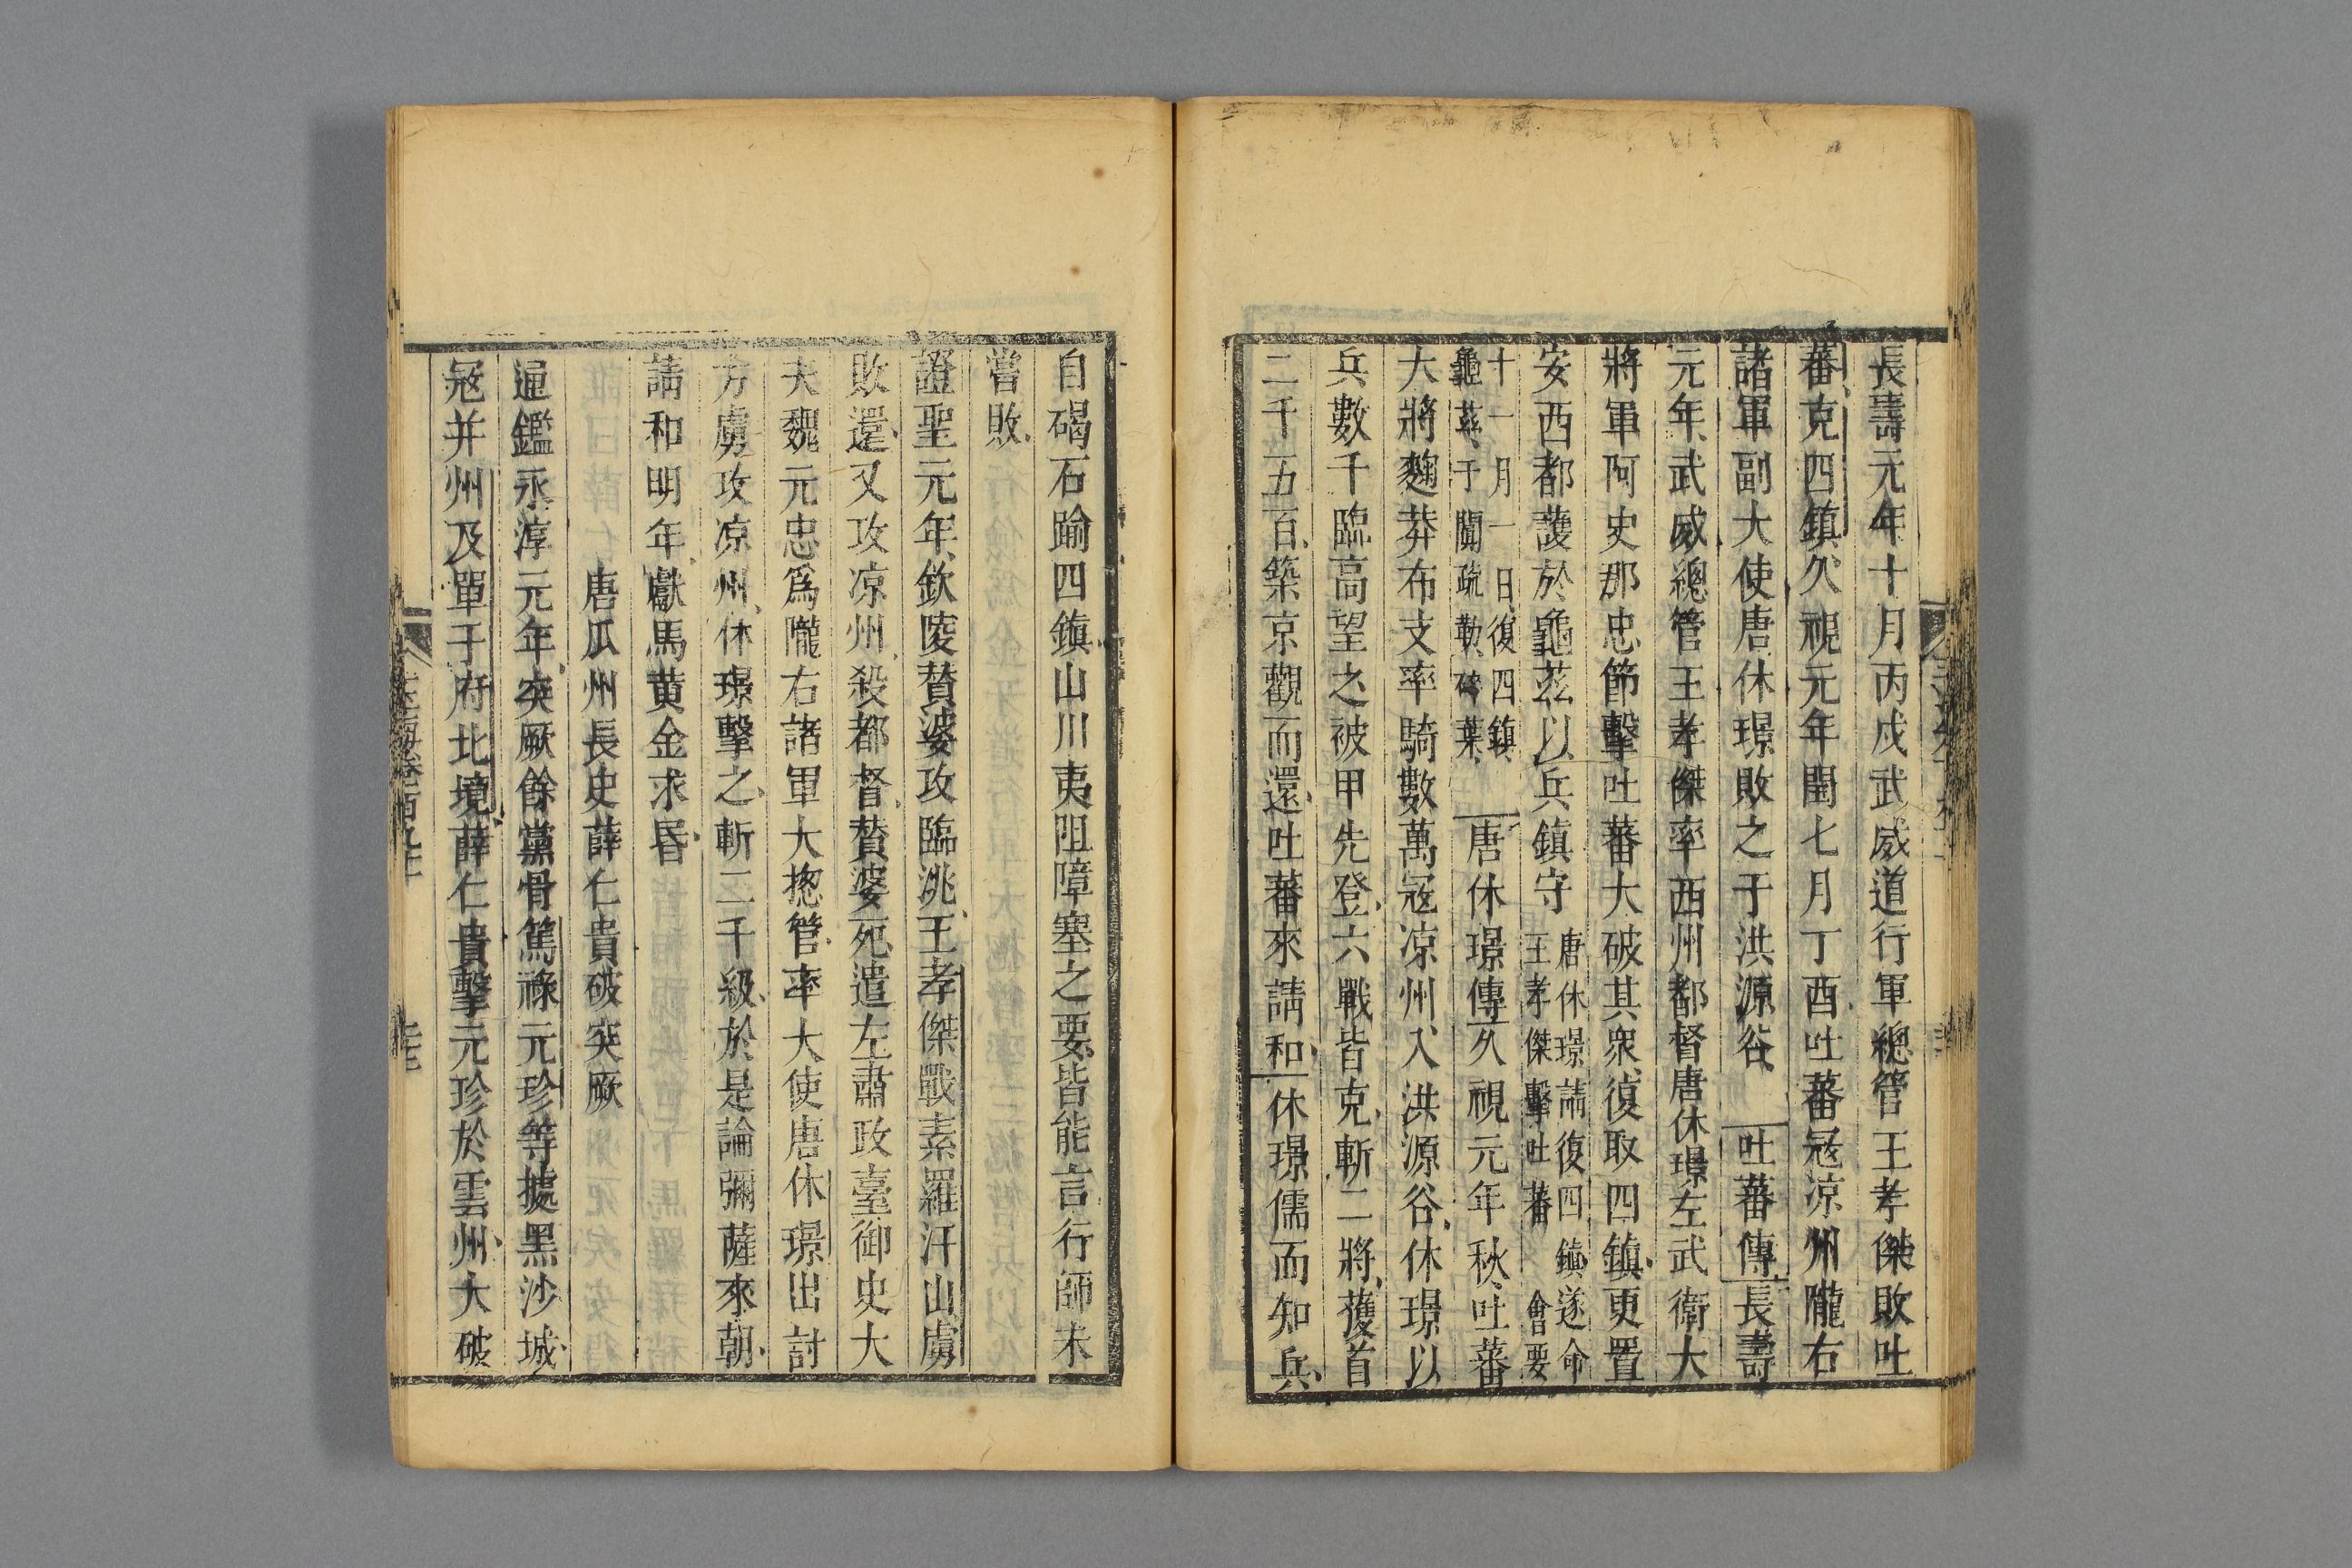 長壽元年十月丙戍武威道行軍總管王孝傑敗吐
蕃克四鎮久視元年閏七月丁酉吐蕃宼涼州隴右
諸軍副大使唐休璟敗之于洪源谷　吐蕃傳長壽
元年武威總管王孝傑率西州都督唐休璟左武衛大
將軍阿史那忠節擊吐蕃大破其衆復取四鎮更置
安西都護於龜茲以兵鎮守唐休璟請復四鎮遂命王孝傑擊吐蕃會要
十一月一日復四鎮龜茲于闐疏勒碎葉　唐休璟傳久視元年秋吐蕃
大將麴莽布支率騎數萬宼凉州入洪源谷休璟以
兵數千臨高望之被甲先登六戰皆克斬二將獲首
二千五百築京觀而還吐蕃來請和休璟儒而知兵
自碣石踰四鎮山川夷阻障塞之要皆能言行師未
嘗敗
證聖元年欽陵贊婆攻臨洮王孝傑戰素羅汗山虜
敗還又攻凉州殺都督贊婆死遣左肅政臺御史大
夫魏元忠爲隴右諸軍大揔管率大使唐休璟出討
方虜攻凉州休璟擊之斬二千級於是論彌薩來朝
請和明年獻馬黃金求昏
唐瓜州長史薛仁貴破突厥
通鑑永淳元年突厥餘黨骨篤祿元珍等據黑沙城
宼并州及單于府北境薛仁貴擊元珍於雲州大破